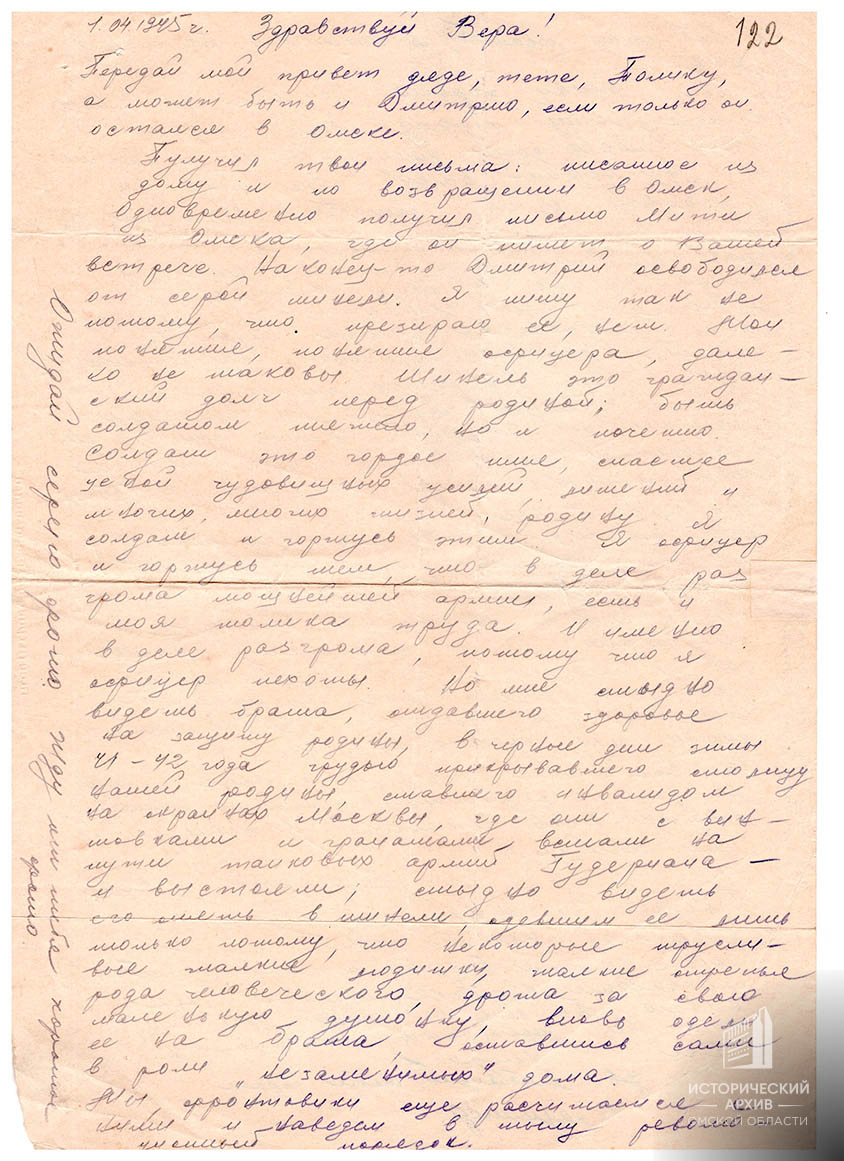 1.04.1945 г. Здравствуй Вера!
122
Передай мой привет дяде, тете, Толику,
а может быть и Дмитрию, если только он
остался в Омске.
Пулучил твои письма: писанное из
дому и по возвращении в Омск,
Одновременно получил письмо Мити
из Омска, где он пишет о Вашей
встрече. Наконец-то Дмитрий освободился
от серой шинели. Я пишу так не
потому, что презираю ее, нет. Мои
понятие, понятие офицера, дале-
ко не таковы. Шинель это граждан-
ский долг перед родиной; быть
солдатом тяжело, но и почетно.
Солдат это гордое имя, спасшее
ценой чудовищных усилий, лишений и
многих, многих жизней, родину. Я
солдат и горжусь этим. Я офицер
и горжусь тем, что в деле раз
грома мощнейшей армии, есть и
моя толика труда. И именно
в деле разгрома, потому что я
офицер пехоты. Но мне стыдно
видеть брата, отдавшего здоровье
на защиту родины, в черные дни зимы
41-42 года грудью прикрывавшего столицу
нашей родины, ставшего инвалидом
на окраинах Москвы, где они с вин-
товками и гранатами, встали на
пути танковых армий Гудериана -
и выстояли; стыдно видеть
его опять в шинели, одевшим ее лишь
только потому, что некоторые трусли-
вые жалкие людишки, жалкие отребье
рода человеческого, дрожа за свою
маленькую душонку, вновь одели
ее на брата, оставшись сами
в роли "незаменимых" дома.
Мы, фронтовики еще расчитаемся с
ними и наведем в тылу револю
ционный порядок.
Ожидай серию фото. Жду от тебя хорошое
фото.
ИСТОРИЧЕСКИЙ
АРХИВ
ОМСКОЙ ОБЛАСТИ